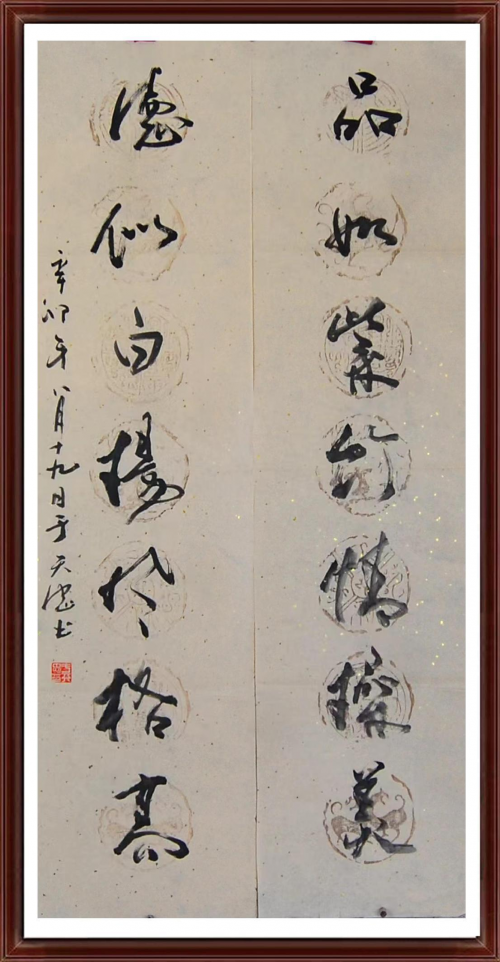 品如紫竹情操美
德似白杨风格高
辛卯年八月十九日于天德书